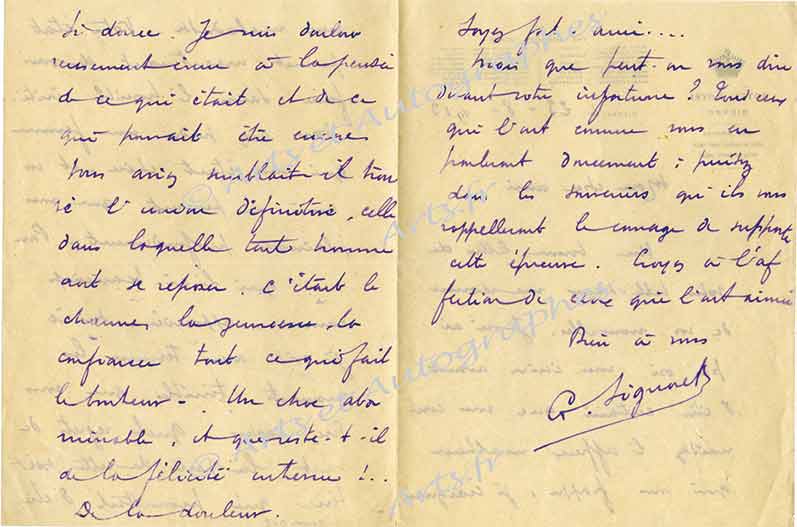 si douce. Je suis doulou
reusement ému à la pensée
de ce qui était et de ce
qui pouvait être encore
Vous aviez semblait-il trou
vé l'union définitive, celle
dans laquelle tout homme
doit se reposer. C'était le
charme, la jeunesse, la
confiance tout ce qui fait
le bonheur – Un choc abo
minable, et que reste-t-il
de la félicité entrevue !..
De la douleur.
Soyez fort. ami....
Mais que peut-on vous dire
devant votre infortune ? Tous ceux
qui l'ont comme vous en
parleront doucement ; puisez
dans les souvenirs qu'ils vous
rappelleront le courage de supporter
cette épreuve. Croyez à l'af
fection de ceux qui l'ont aimée
Bien à vous
G. Signoret
© Arts et Autographes
Arts.fr
© Arts et Autographes
Arts.fr